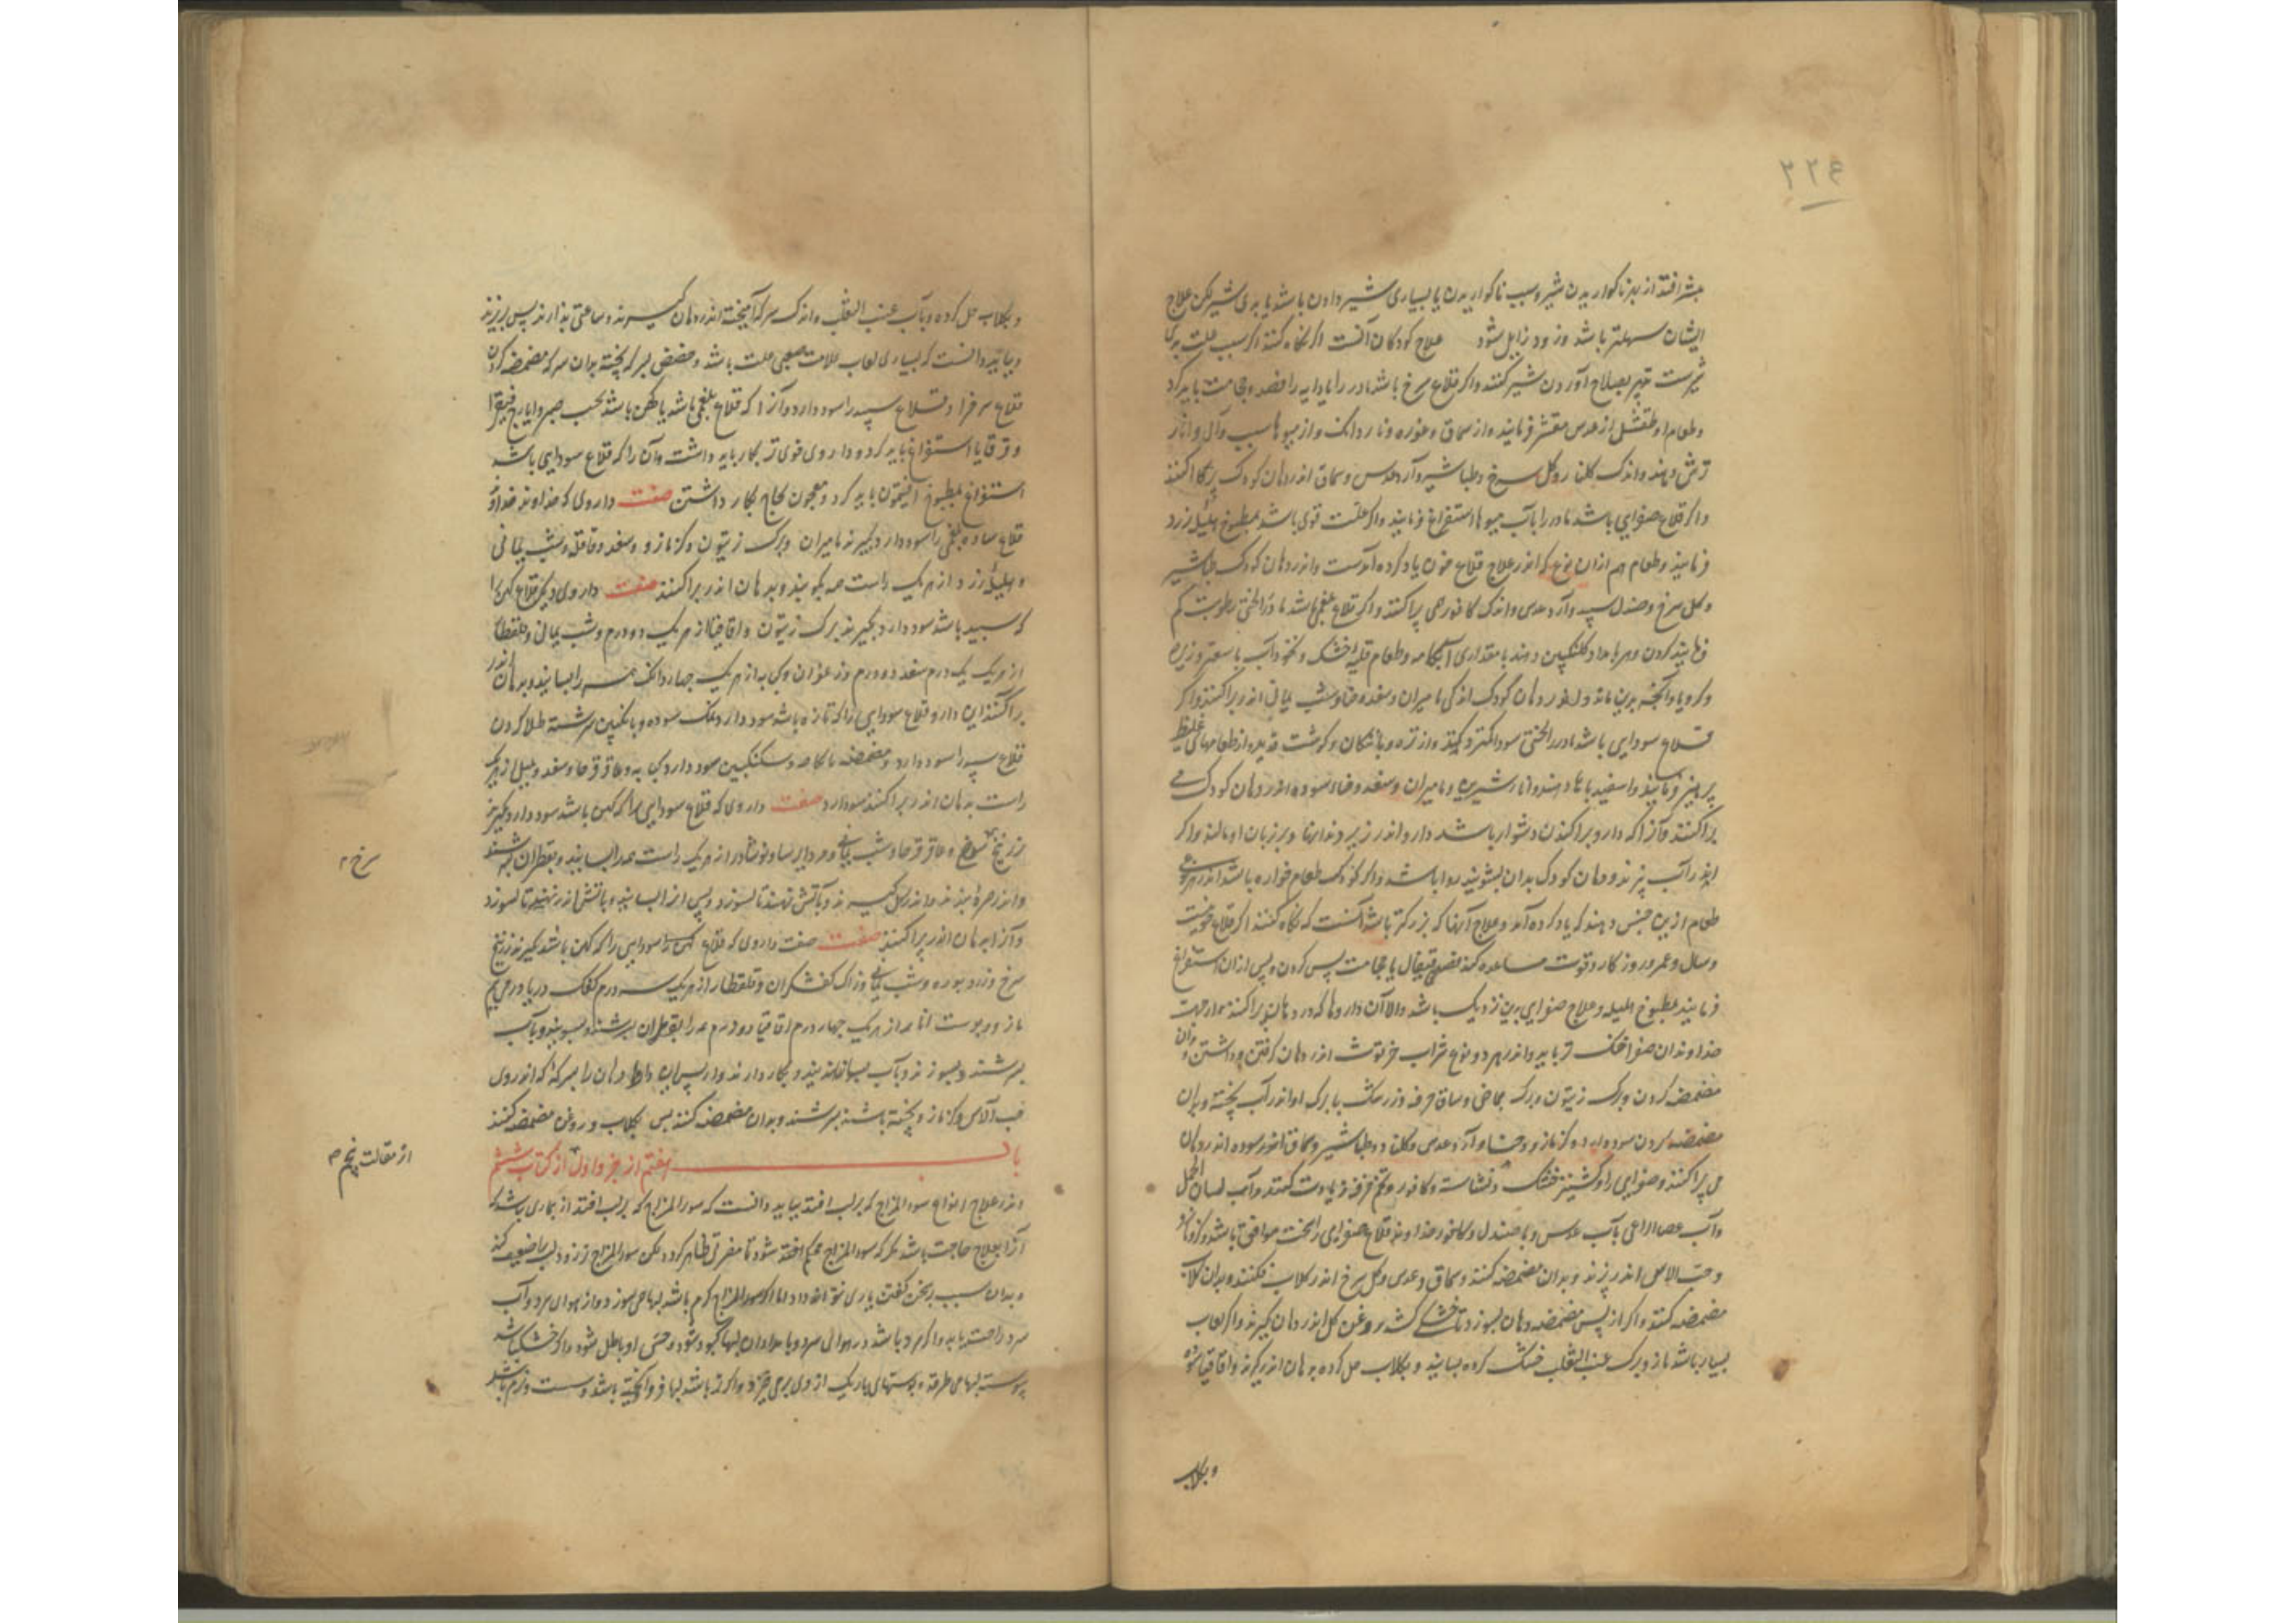 ۲۲۶
بیشتر افتد از بهر ناکواریدن شیر و سبب ناکواریدن یا بسیاری شیر دادن باشد یا بدی شیر لکن علاج
ایشان سهلتر باشد و زود زایل شود علاج کودکان آنست که نگاه کنند اگر سبب علت بدی
شیرست تدبیر بصلاح آوردن شیر کنند و اکر قلاع سرخ باشد مادر را یا دایه را فصد و حجامت باید کرد
و طعام او طفشیل از عدس مقشر فرمایند و از سماق و غوره و ناردانک و از میوها سیب و آبی و انار
ترش دهند و اندک کلنار و کل سرخ و طباشیر و آرد عدس و سماق اندر دهان کودک پراکنند
و اکر قلاع صفرایی باشد مادر را بآب میوها استفراغ فرمایند و اکر علت قوی باشد بمطبوخ هلیله زرد
فرمایند و طعام هم ازان نوع که اندر علاج قلاع خون یاد کرده آمدست و اندر دهان کودک طباشیر
و کل سرخ و صندل سپید و آرد عدس و اندک کافور همی پراکنند و اکر قلاع بلغمی باشد مادر را لختی رطوبت کم
فرمایند کردن و هر بامداد کلنکبین دهند با مقداری آبکامه و طعام قلیه خشک و نخودآب با سعتر و زیره
و کرویا و آنچه بدین ماند و اندر دهان کودک اندکی مامیران و سعد و شب یمانی اندر پراکنند و اکر
قلاع سودایی باشد مادر را لختی سودا کمتر کنند و از تره و بادنکان و کوشت قدید و از طعامهای غلیظ
پرهیز فرمایند و اسفیدباها دهند و انار شیرین و مامیران و سعد و حنا سوده اندر دهان کودک می
پراکنند و آنرا که دارو پراکندن دشوار باشد دارو اندر زیر دندانها و بر زبان او مالند و اکر
اندر آب پزند و دهان کودک بدان بشویند روا باشد و اکر کودک طعام خواره باشد اندر هر نوعی
طعام ازین جنس دهند که یاد کرده آمد و علاج آنها که بزرکتر باشد آنست که نکاه کنند اکر قلاع خونیست
و سال و عمر و روزکار و قوت مساعده کند فصد قیفال یا حجامت پس کردن و پس ازان استفراغ
فرمایند بمطبوخ هلیله و علاج صفرایی بدین نزدیک باشد والا آن داروها که در دهان پراکنند از جهت
خداوندان صفرا خنک تر باید و اندر هر دو نوع شراب خرتوت اندر دهان کرفتن و داشتن و بدان
مضمضه کردن و برک زیتون و برک حماض و ساق خرفه و زرشک با برک او اندر آب پخته و بدان
مضمضه کردن سود دارد و کزمازو و حنا و آرد عدس و کلنار و طباشیر و سماق اندر سوده اندر دهان
می پراکنند و صفرایی را و کشنیز خشک و نشاسته و کافور و تخم خرفه زیادت کنند و آب لسان الحمل
و آب عصاالراعی یا آب عدس و با صندل و کافور خداوند قلاع صفرایی را سخت موافق باشد و کزمازو
و حب الآس اندر پزند و بدان مضمضه کنند و سماق و عدس و کل سرخ اندر کلاب فکنند و بدان کلاب
مضمضه کنند و اکر از پس مضمضه دهان بسوزد تا خشکی کشد روغن کل اندر دهان کیرند و اکر لعاب
بسیار باشد مازو و برک عنب الثعلب خشک کرده بسایند و بکلاب حل کرده بدهان اندر کیرند و اقاقیا سوده
و بکلاب
و بکلاب حل کرده و بآب عنب الثعلب و اندک سرکه آمیخته اندر دهان کیرند و ساعتی بدارند پس بریزند
و بباید دانست که بسیاری لعاب علامت صعبی علت باشد و حضض بسرکه پخته و بدان سرکه مضمضه کردن
قلاع سرخ را و قلاع سپید را سود دارد و آنرا که قلاع بلغمی باشد یا کهن باشد بحب صبر و ایارج فیقرا
و قوقایا استفراغ باید کرد و داروی قوی تر بکار باید داشت و آن را که قلاع سودایی باشد
استفراغ بمطبوخ افتیمون باید کرد و معجون نجاح بکار داشتن صفت داروی که خداوند
قلاع ساده بلغمی را سود دارد بکیرند مامیران و برک زیتون و کزمازو و سعد و قاقله و شب یمانی
و هلیله زرد از هر یک راست همه بکوبند و بدهان اندر پراکنند صفت داروی دیکر قلاع کهن را
که سپید باشد سود دارد بکیرند برک زیتون و اقاقیا از هر یک دو درم و شب یمانی و قلقطار
از هر یک یک درم سعد دو درم و زعفران و کبابه از هر یک چهار دانک همه را بسایند و بدهان اندر
پراکنند این دارو قلاع سودایی را که تازه باشد سود دارد نمک سوده و بانکبین سرشته طلا کردن
قلاع سپید را سود دارد و مضمضه بآبکامه و سکنکبین سود دارد کبابه و عاقرقرحا و سعد و هلیله از هر یک
راست بدهان اندر پراکنند سود دارد صفت داروی که قلاع سودایی را که کهن باشد سود دارد بکیرند
زرنیخ سرخ و عاقرقرحا و شب یمانی و مردایسا و نوشادر از هر یک راست همه را بسایند و بقطران بسرشند
و اندر خرقه بندند و اندر کل کیرند و بآتش نهند تا بسوزد و پس ازان بسایند
و آنرا بدهان اندر پراکنند صفت صفت داروی که قلاع سودایی را که کهن باشد بکیرند زرنیخ
سرخ و زرد و بوره و شب یمانی و زاک کفشکران و قلقطار از هر یک سه درم کفک دریا و
مازو و پوست انار از هر یک چهار درم اقاقیا دو درم همه را بقطران بسرشند و بسوزند و بآب
بسرشند و بسوزند و بکار دارند و از پس آن دهان را بسرکه که اندر وی
حب الآس و کزمازو پخته باشند بشویند و بدان مضمضه کنند پس بکلاب و روغن مضمضه کنند
باب هفتم از جزو اول از کتاب ششم
اندر علاج انواع سوء المزاج که بر لب افتد بباید دانست که سوء المزاج که بر لب افتد از بیماری باشد که
آنرا بعلاج حاجت باشد مکر که سوء المزاج محکم افتد شود تا مضرتی ظاهر کردد لکن سوء المزاج تر زود لب را ضعیف کند
و بدان سبب بسخن کفتن یاری نتواند داد اما اکر سوء المزاج کرم باشد لبها می سوزد و از هوای سرد و آب
سرد راحت یابد و اکر سرد باشد در هوای سرد و بامدادان لبها کبود شود و حس او باطل شود و اکر خشک باشد
پیوسته لبها می طرقد و پوستهای باریک از وی برمی خیزد و اکر تر باشد لبها فرو آویخته باشد و سست و نرم باشد
سرخ ۲
از مقالت پنجم